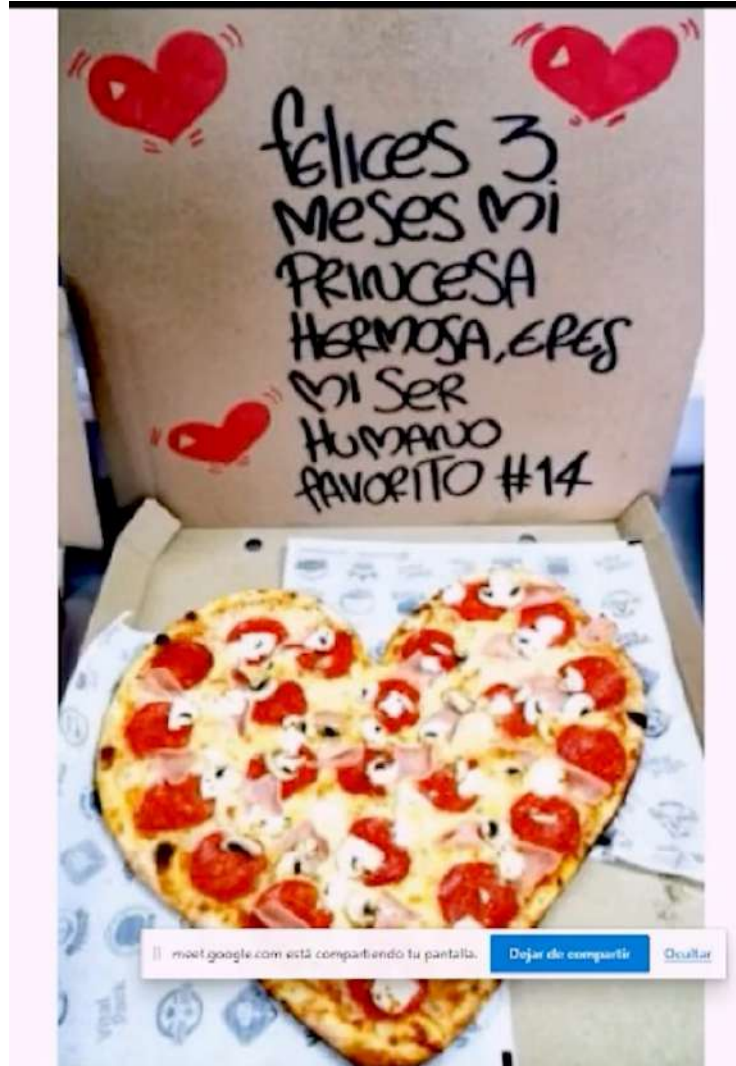 felices 3
meses mi
princesa
hermosa, eres
mi ser
humano
favorito #14
meet.google.com está compartiendo tu pantalla.
Dejar de compartir
Ocultar